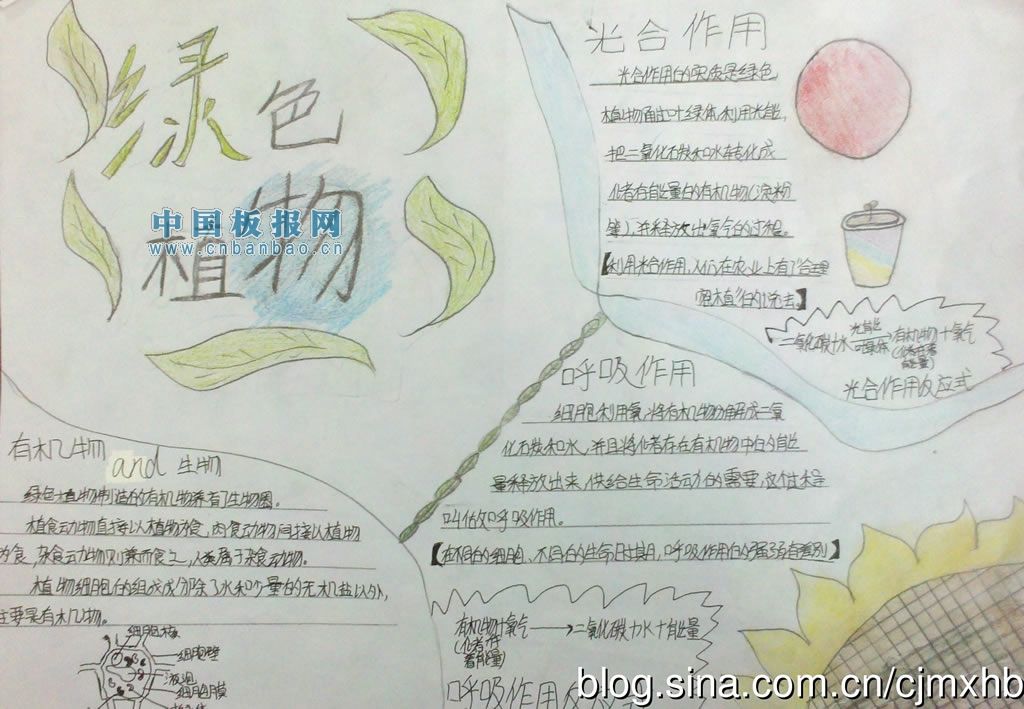 绿色
植物
中国板报网
www.cnbanbao.cn
光合作用
光合作用的实质是绿色
植物通过叶绿体,利用光能,
把二氧化碳和水转化成
储存有能量的有机物(淀粉
等),并释放出氧气的过程。
【利用光合作用,人们在农业上有了“合理
密植”的说法。】
二氧化碳+水 光能 叶绿体 有机物+氧气
(储存着
能量)
光合作用反应式
呼吸作用
细胞利用氧,将有机物分解成二氧
化碳和水,并且将储存在有机物中的能
量释放出来,供给生命活动的需要,这个过程
叫做呼吸作用。
【在不同的细胞、不同的生命周期,呼吸作用的强弱有差别】
有机物+氧气→二氧化碳+水+能量
(储存
着能量)
呼吸作用反
有机物
and 生物
绿色植物制造的有机物养育了生物圈。
植食动物直接以植物为食,肉食动物间接以植物
为食,杂食动物则兼而食之,人类属于杂食动物。
植物细胞的组成成分除了水和少量的无机盐以外,
主要是有机物。
细胞核
细胞壁
液泡
细胞膜
blog.sina.com.cn/cjmxhb